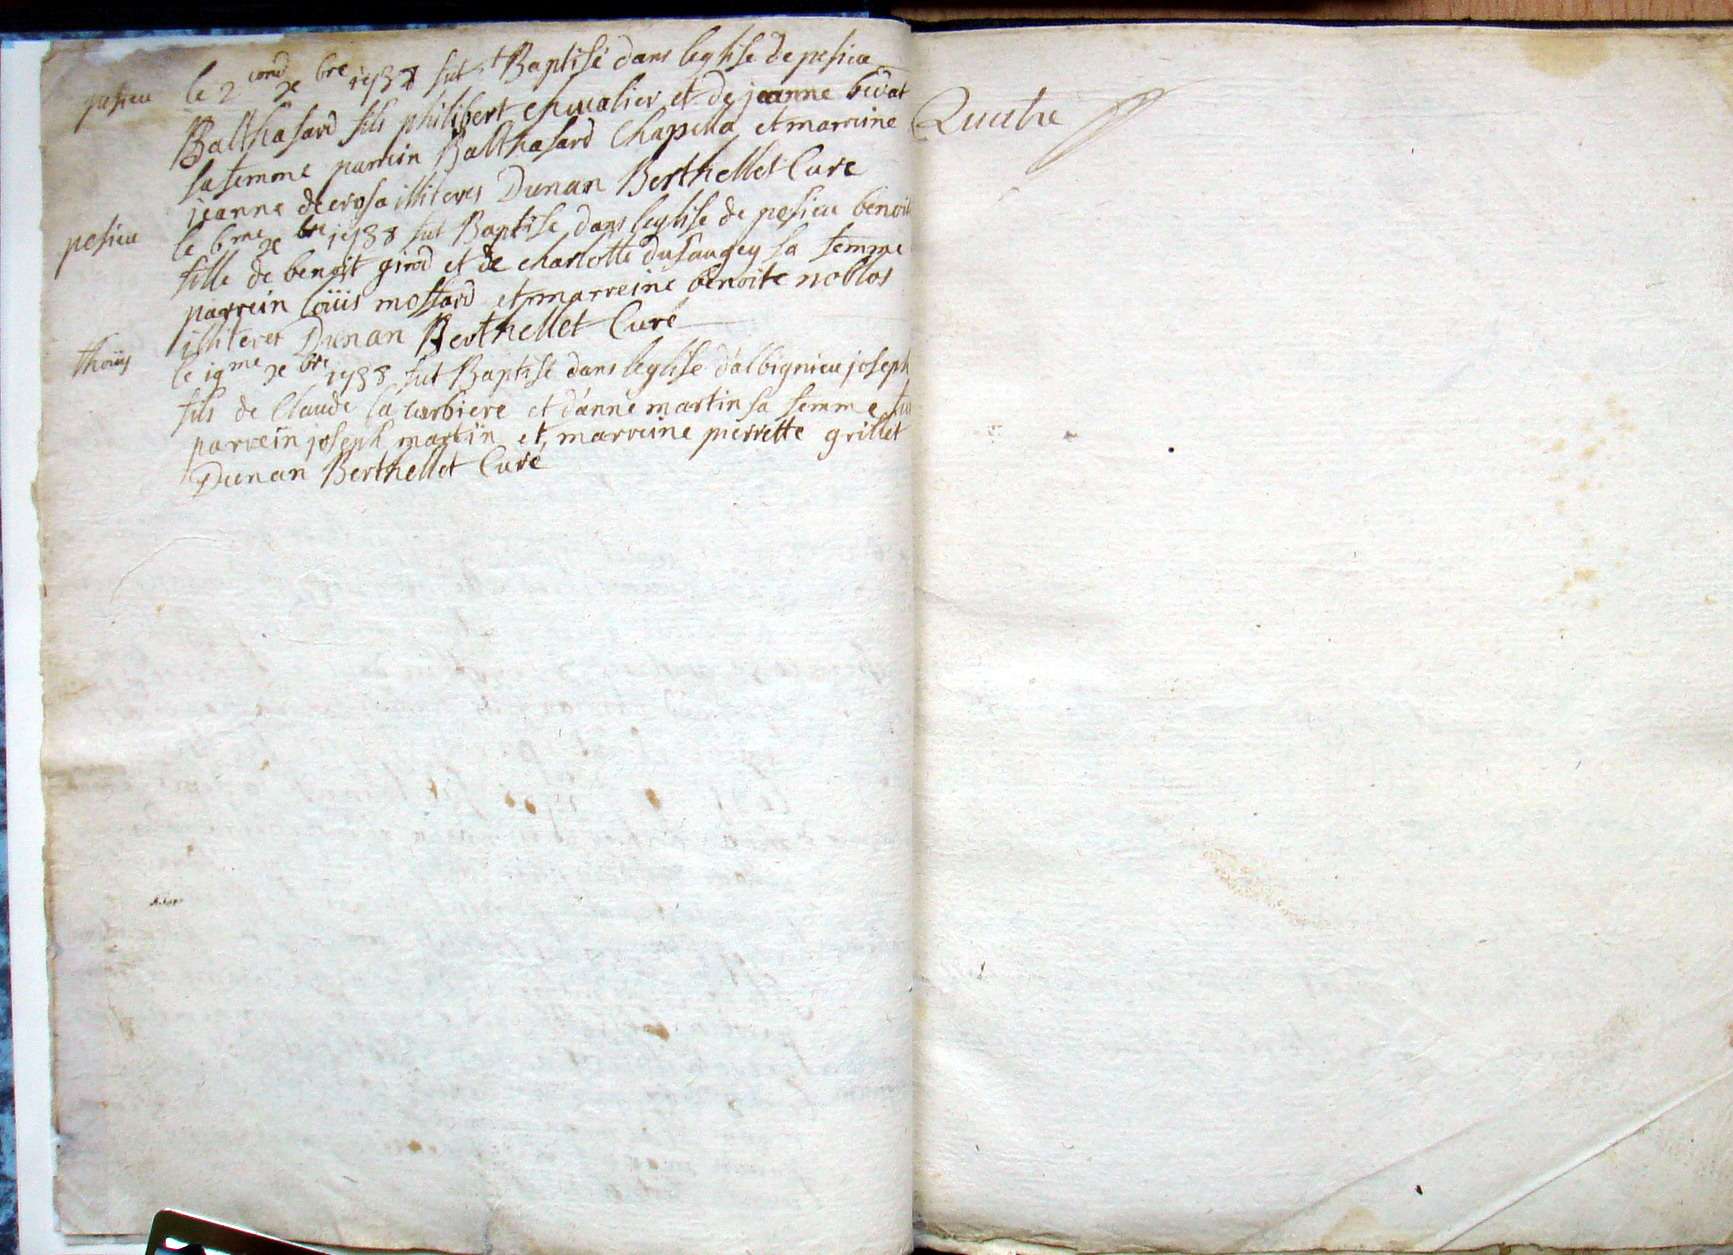 pesieu le 2 cond xe bre 1738 fut Baptisé dans leglise de pesieu
Balthasard fils philibert chevalier et de jeanne bidat
sa femme parrin Balthasard Chapella et marrine
jeanne decrosa illiteres Dunan Berthellet Curé
pesieu le 6 me xe bre 1738 fut Baptise dans leglise de pesieu benoite
fille de benoit girod et de charlotte dusaugey sa femme
parrein loüis mossard et marreine benoite noblos
illiteres Dunan Berthellet Curé
thoüy le 19 me xe bre 1738 fut Baptisé dans leglise d'albignieu joseph
fils de Claude la curbiere et d'anne martin sa femme
parrein joseph martin et marreine pierrette grillet
Dunan Berthellet Curé
Quatre